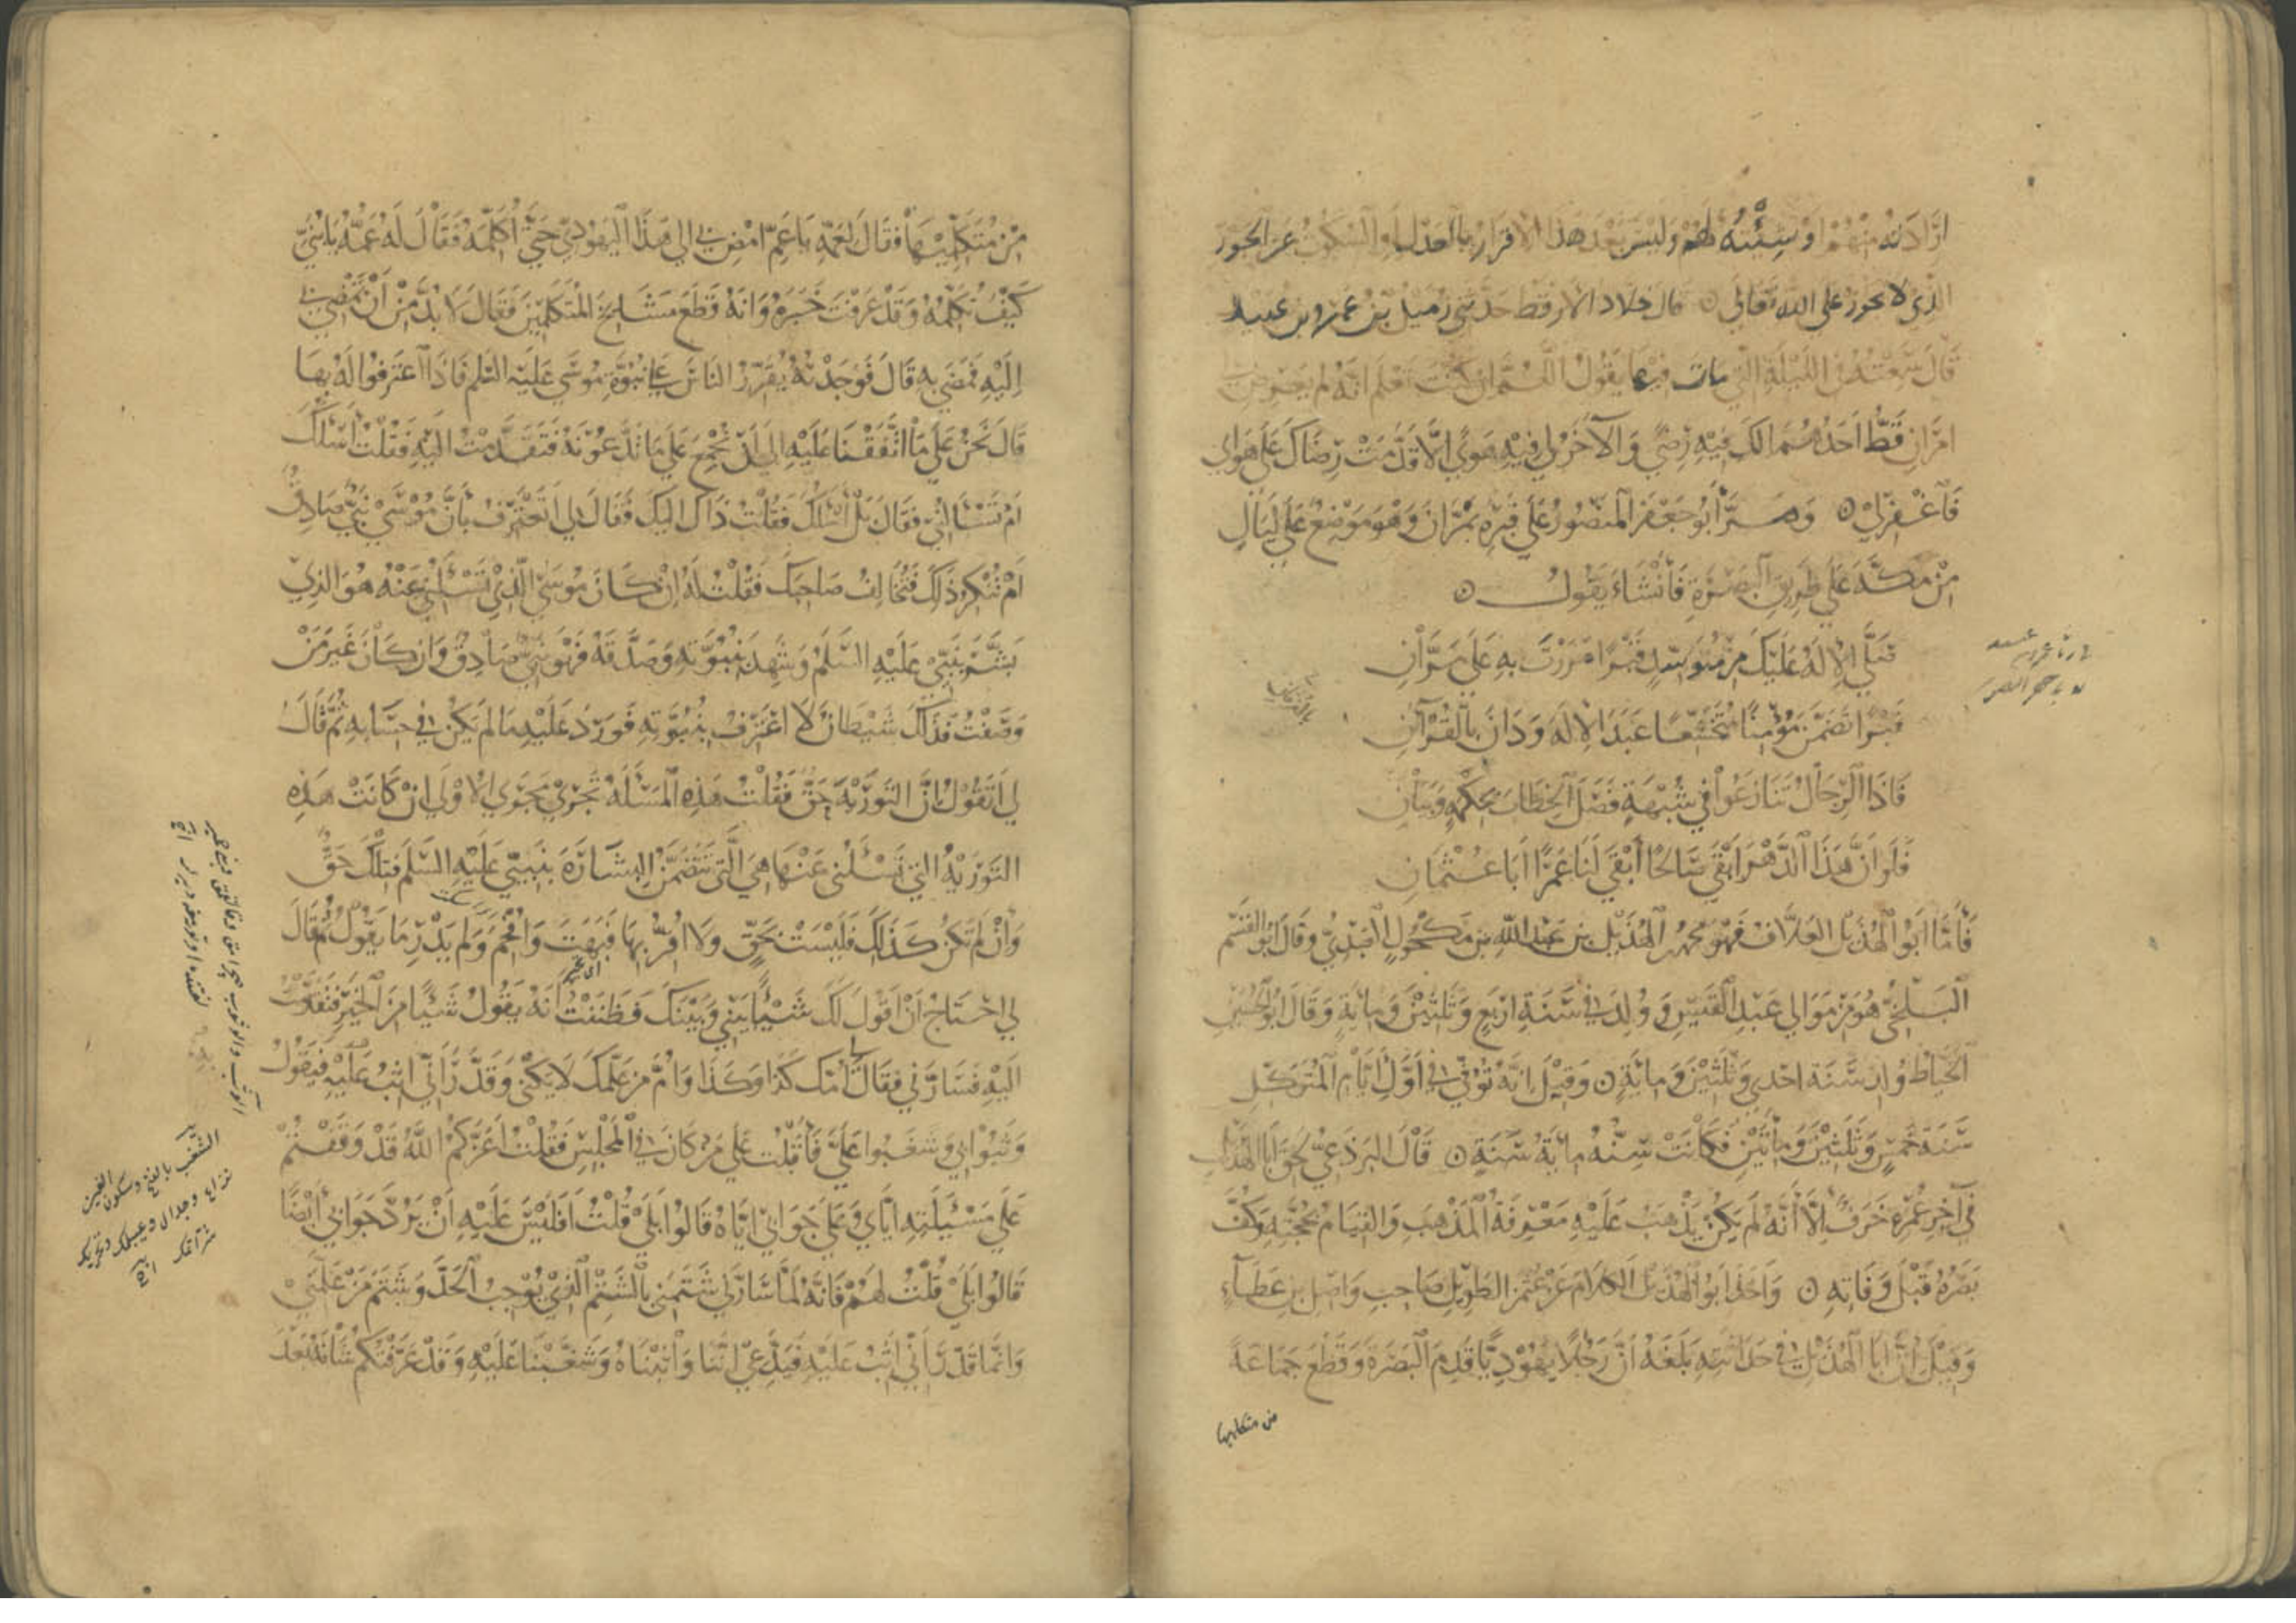 ارادته منهم او سيئته لهم وليس بعد هذا الاقرار بالعدل والسكوت عن الجور
الذي لا يجوز على الله تعالى ۝ قال خلاد الارقط حدثني زميل بن عمرو بن عبيد
قال سمعته في الليلة التي مات فيها يقول اللهم ان كنت تعلم انه لم يعرض لي
امران قط احدهما لك فيه رضى والآخر لي فيه هوى الا قدمت رضاك على هواي
فاغفر لي ۝ ومر أبو جعفر المنصور على قبره بمران وهو موضع على ليال
من مكة على طريق البصرة فأنشاء يقول ۝
صلى الاله عليك من متوسد قبرا مررت به على مران
قبرا تضمن مؤمنا متخشعا عبد الاله ودان بالقرآن
فاذا الرجال تنازعوا في شبهة فصل الخطاب بحكمة وبيان
فلو ان هذا الدهر ابقى صالحا أبقى لنا عمرا ابا عثمان
فأما ابو الهذيل العلاف فهو محمد بن الهذيل بن عبد الله بن مكحول العبدي وقال ابو القسم
البلخي هو من موالي عبد القيس وولد في سنة اربع وثلثين ومائة وقال ابو الحسين
الخياط ولد سنة احدى وثلثين ومائة ۝ وقيل انه توفي في اول ايام المتوكل
سنة خمس وثلثين ومأتين فكانت سنه مائة سنة ۝ قال البرذعي لحق ابا الهذيل
في آخر عمره خرف الا أنه لم يكن يذهب عليه معرفة المذهب والقيام بحجته وكف
بصره قبل وفاته ۝ واخذ ابو الهذيل الكلام عن عثمن الطويل صاحب واصل بن عطاء
وقيل ان ابا الهذيل في حداثته بلغه ان رجلا يهوديا قدم البصرة وقطع جماعة
من متكلميها
من متكلميها فقال لعمه يا عم امض بي الى هذا اليهودي حتى أكلمه فقال له عمه يا بني
كيف تكلمه وقد عرفت خبره وانه قطع مشايخ المتكلمين فقال لا بد من ان تمضي بي
اليه فمضى به قال فوجدته يقرر الناس على نبوة موسى عليه السلم فاذا اعترفوا له بها
قال نحن على ما اتفقنا عليه الى ان نجمع على ما تدعونه فتقدمت اليه فقلت أسئلك
ام تسألني فقال بل اسئلك فقلت ذاك اليك فقال لي اتعترف بأن موسى نبي صادق
ام تنكر ذلك فتخالف صاحبك فقلت له ان كان موسى الذي تسئلني عنه هو الذي
بشر بنبيي عليه السلم وشهد بنبوته وصدقه فهو نبي صادق وان كان غير من
وصفت فذاك شيطان لا اعترف بنبوته فورد عليه ما لم يكن في حسابه ثم قال
لي اتقول ان التورية حق فقلت هذه المسئلة تجري مجرى الاولى ان كانت هذه
التورية التي تسئلني عنها هي التي تتضمن البشارة بنبيي عليه السلم فتلك حق
وان لم تكن كذلك فليست بحق ولا اقر بها فبهت وافحم ولم يدر ما يقول ثم قال
لي احتاج ان اقول لك شيئا بيني وبينك فظننت أنه يقول شيئا من الخير فتقدمت
اليه فسارني فقال لي امك كذا وكذا وام من علمك لا يكنى وقدر أني اثب عليه فيقول
وثبوا بي وشغبوا علي فأقبلت على من كان في المجلس فقلت أعزكم الله قد وقفتم
على مسئلته اياي وعلى جوابي اياه قالوا بلى قلت افليس عليه ان يرد جوابي أيضا
قالوا بلى قلت لهم فانه لما سارني شتمني بالشتم الذي يوجب الحد وشتم من علمني
وانما قدر أني اثب عليه فيدعي اننا واثبناه وشغبنا عليه وقد عرفتكم شأنه بعد
الشغب بالفتح وسكون الغين